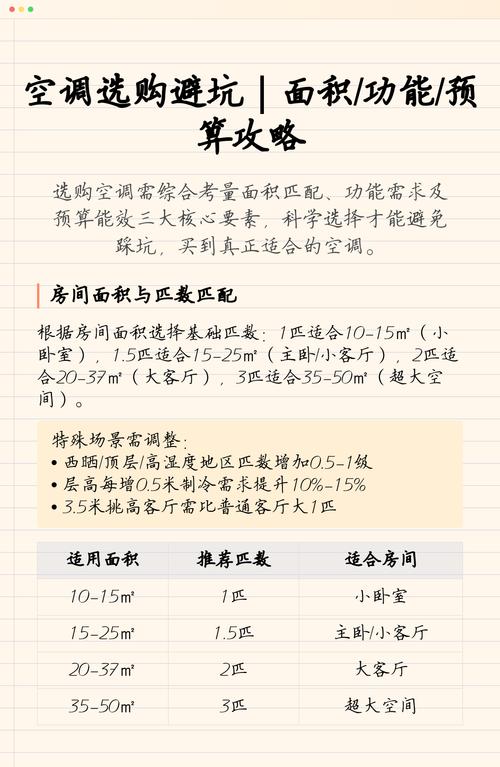 空调选购避坑 | 面积/功能/预
算攻略
选购空调需综合考量面积匹配、功能需求及
预算能效三大核心要素，科学选择才能避免
踩坑，买到真正适合的空调。
房间面积与匹数匹配
根据房间面积选择基础匹数：1匹适合10-15㎡（小
卧室），1.5匹适合15-25㎡（主卧/小客厅），2匹适
合20-37㎡（大客厅），3匹适合35-50㎡（超大空
间）。
特殊场景需调整：
• 西晒/顶层/高湿度地区匹数增加0.5-1级
• 层高每增0.5米制冷需求提升10%-15%
• 3.5米挑高客厅需比普通客厅大1匹
适用面积 推荐匹数 适合房间
10-15㎡ 1匹 小卧室
15-25㎡ 1.5匹 主卧/小客厅
20-37㎡ 2匹 大客厅
35-50㎡ 3匹 超大空间